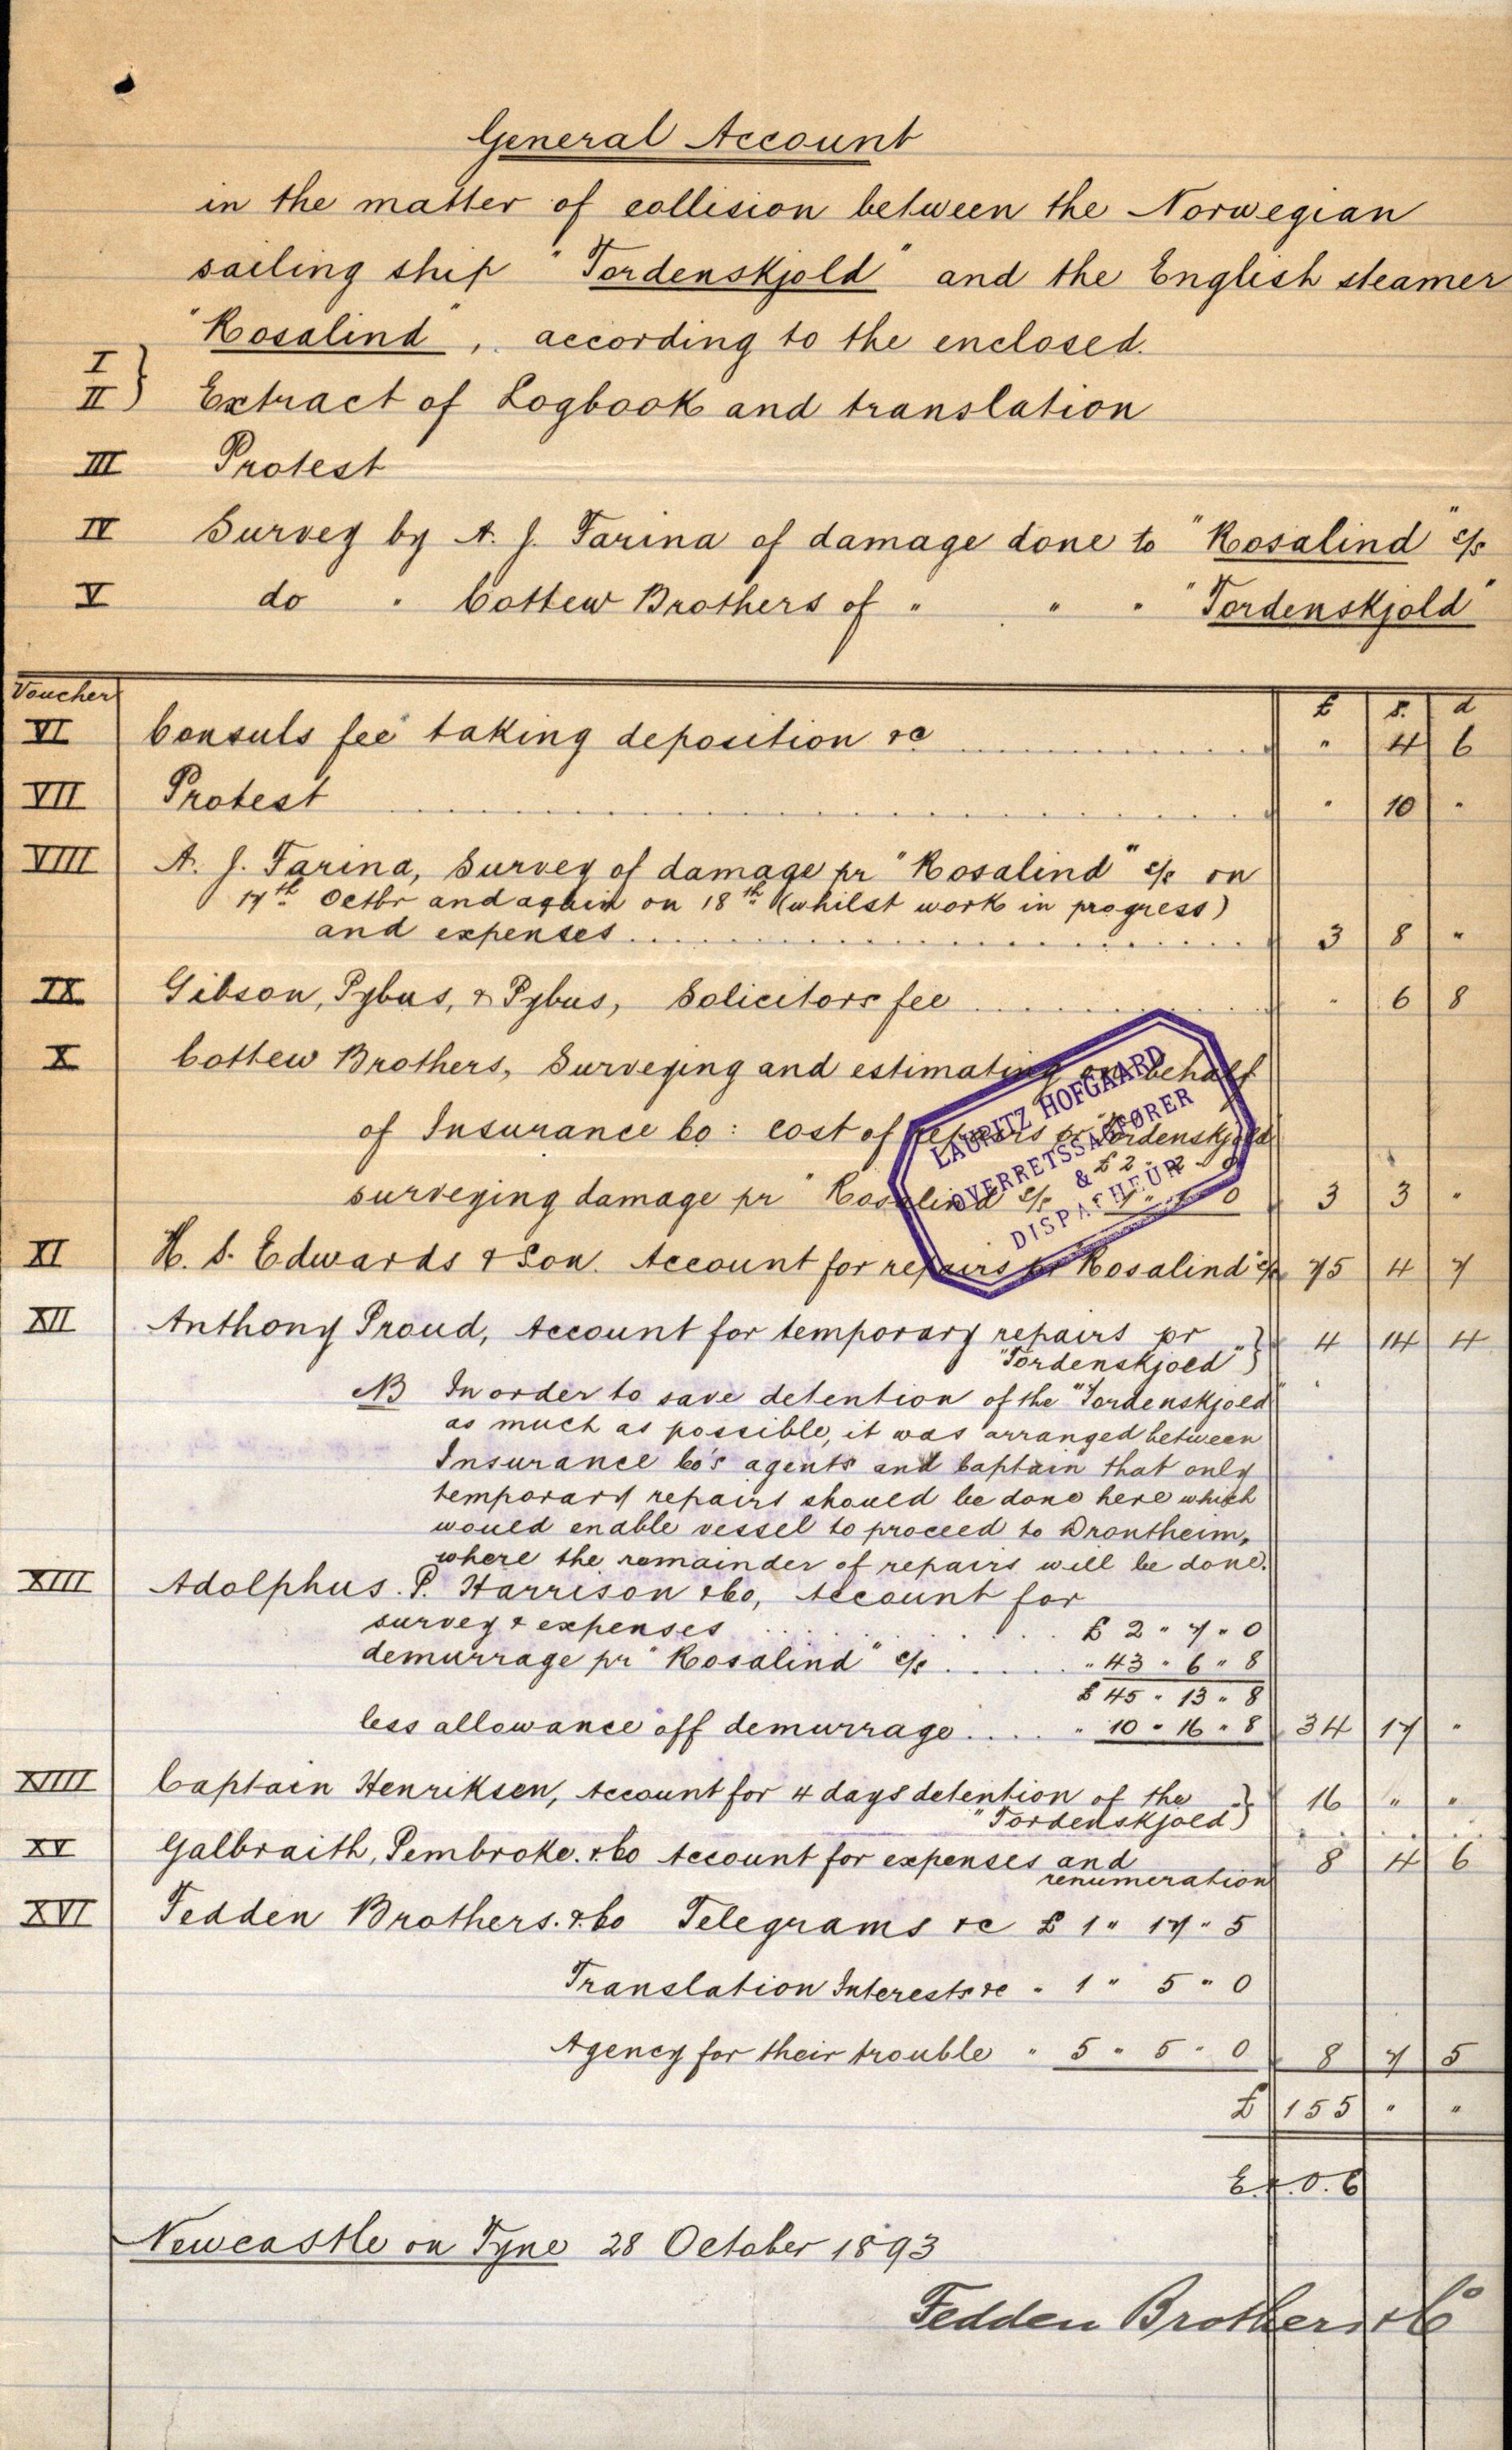 General Account
in the matter of collision between the Norwegian
sailing ship "Tordenskjold" and the English steamer
"Rosalind", according to the enclosed.
I
II } Extract of Logbook and translation
III Protest
IV Survey by A. J. Farina of damage done to "Rosalind" s/s
V do " Cottew Brothers of " " " "Tordenskjold"
Voucher £ s. d
VI Consuls fee taking deposition &c " 4 6
VII Protest " 10 "
VIII A. J. Farina, Survey of damage pr "Rosalind" s/s on
17th Octbr and again on 18th (whilst work in progress)
and expenses 3 8 "
IX Gibson, Pybus, & Pybus, Solicitors fee " 6 8
X Cottew Brothers, Surveying and estimating on behalf
of Insurance Co: cost of repairs pr "Tordenskjold
£ 2 " 2 " 0
surveying damage pr "Rosalind" s/s " 1 " 1 " 0 3 3 "
XI H. S. Edwards & Son. Account for repairs pr Rosalind" s/s 75 4 7
XII Anthony Proud, Account for temporary repairs pr } 4 14 4
"Tordenskjold"
NB In order to save detention of the "Tordenskjold"
as much as possible, it was arranged between
Insurance Co's agents and Captain that only
temporary repairs should be done here which
would enable vessel to proceed to Drontheim,
where the remainder of repairs will be done.
XIII Adolphus. P. Harrison & Co, Account for
survey & expenses £ 2 " 7 " 0
demurrage pr "Rosalind" s/s " 43 " 6 " 8
£ 45 " 13 " 8
less allowance off demurrage " 10 " 16 " 8 34 17 "
XIIII Captain Henriksen, Account for 4 days detention of the } 16 " "
"Tordenskjold
XV Galbraith, Pembroke. & Co Account for expenses and 8 4 6
renumeration
XVI Fedden Brothers. & Co Telegrams &c £ 1 " 17 " 5
Translation Interests &c " 1 " 5 " 0
Agency for their trouble " 5 " 5 " 0 8 7 5
£ 155 " "
E. & O. E
Newcastle on Tyne 28 October 1893
Fedden Brothers & Co
LAURITZ HOFGAARD
OVERRETSSAGFØRER
&
DISPACHEUR